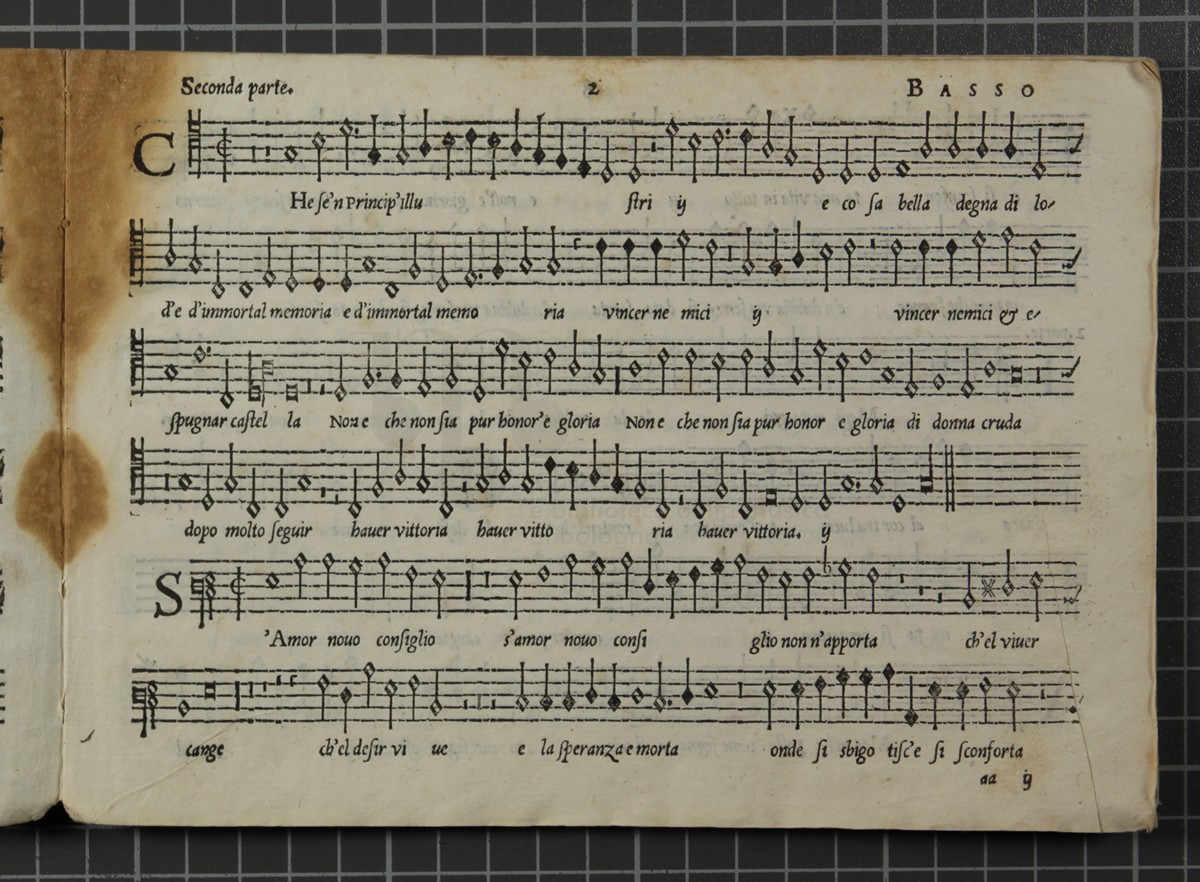 Seconda parte. 2 BASSO
CHe se'n Princip'illu stri ij e co sa bella degna di lo-
d'e d'immortal memoria e d'immortal memo ria vincer ne mici ij vincer nemici & e-
spugnar castel la Non e che non sia pur honor'e gloria Non e che non sia pur honor e gloria di donna cruda
dopo molto seguir hauer vittoria hauer vitto ria hauer vittoria. ij
S'Amor nouo consiglio s'amor nouo consi glio non n'apporta ch'el viuer
cange ch'el desir vi ue e la speranza e morta onde si sbigo tisc'e si sconforta
aa ij